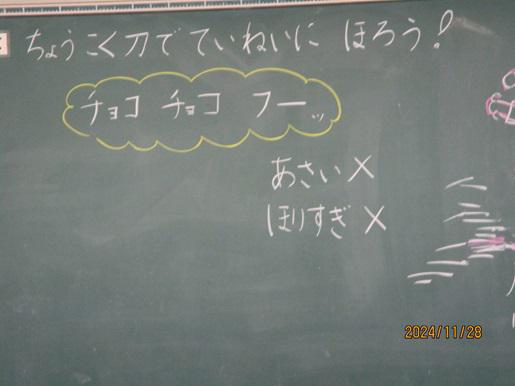 ちょうこく刀でていねいに ほろう!
チョコ チョコ フーッ
あさい×
ほりすぎ×
2024/11/28